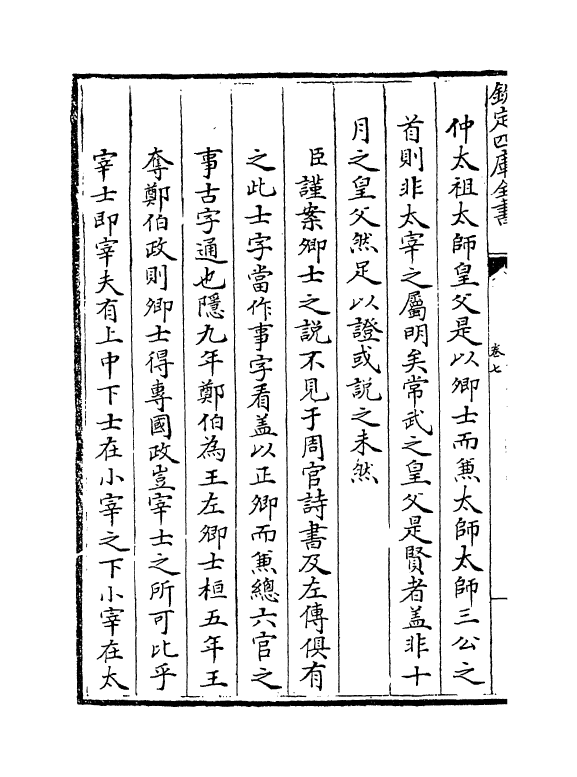 欽定四庫全書
卷七
仲太祖太師皇父是以卿士而兼太師太師三公之
首則非太宰之屬明矣常武之皇父是賢者盖非十
月之皇父然足以證或説之未然
臣謹案卿士之説不見于周官詩書及左傳俱有
之此士字當作事字看盖以正卿而兼總六官之
事古字通也隱九年鄭伯為王左卿士桓五年王
奪鄭伯政則卿士得專國政豈宰士之所可比乎
宰士即宰夫有上中下士在小宰之下小宰在太